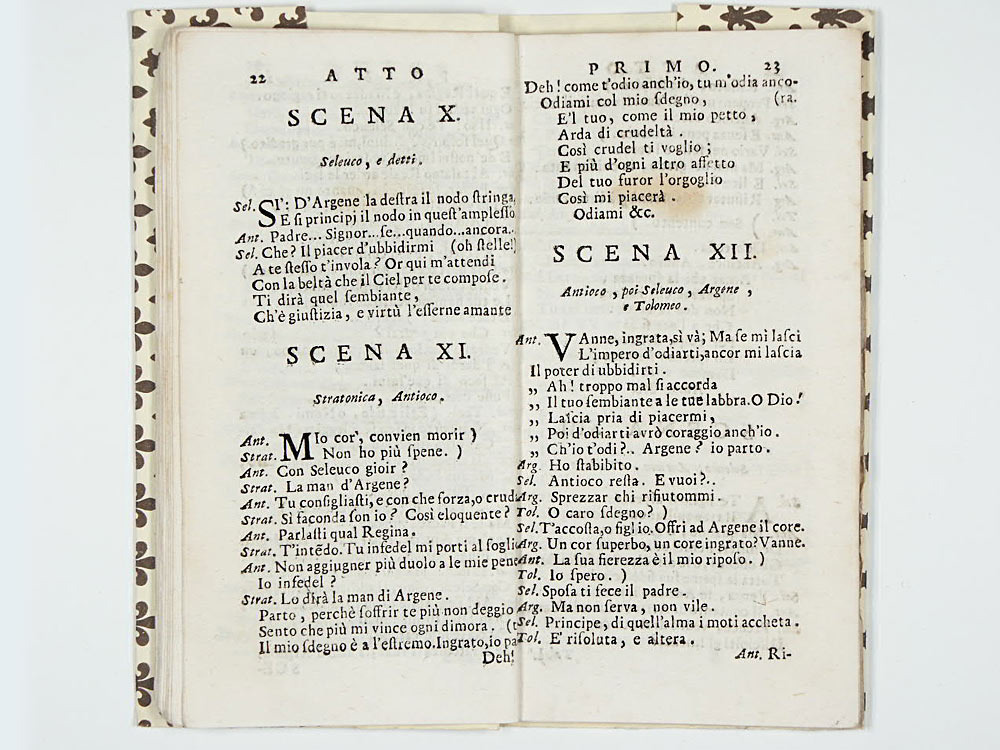 22 ATTO
SCENA X.
Seleuco, e detti.
Sel. SI': D'Argene la deſtra il nodo ſtringa,
E ſi principj il nodo in queſt'ampleſſo
Ant. Padre... Signor...ſe...quando...ancora..
Sel. Che? Il piacer d'ubbidirmi (oh ſtelle!)
A te ſteſſo t'invola? Or qui m'attendi
Con la beltà che il Ciel per te compoſe.
Ti dirà quel ſembiante,
Ch'è giuſtizia, e virtù l'eſſerne amante
SCENA XI.
Stratonica, Antioco.
Ant. MIo cor', convien morir )
Strat. Non ho più ſpene. )
Ant. Con Seleuco gioir?
Strat. La man d'Argene?
Ant. Tu conſigliaſti, e con che forza, o crud
Strat. Sì faconda ſon io? Così eloquente?
Ant. Parlaſti qual Regina.
Strat. T'intēdo. Tu infedel mi porti al ſogli
Ant. Non aggiugner più duolo a le mie pene
Io infedel?
Strat. Lo dirà la man di Argene.
Parto, perchè ſoffrir te più non deggio
Sento che più mi vince ogni dimora. (t
Il mio ſdegno è a l'eſtremo. Ingrato, io pa
Deh!
PRIMO. 23
Deh! come t'odio anch'io, tu m'odia anco-
Odiami col mio ſdegno, (ra.
E'l tuo, come il mio petto,
Arda di crudeltà.
Così crudel ti voglio;
E più d'ogni altro affetto
Del tuo furor l'orgoglio
Così mi piacerà.
Odiami &c.
SCENA XII.
Antioco, poi Seleuco, Argene,
e Tolomeo.
Ant. VAnne, ingrata, sì và; Ma ſe mi laſci
L'impero d'odiarti, ancor mi laſcia
Il poter di ubbidirti.
„ Ah! troppo mal ſi accorda
„ Il tuo ſembiante a le tue labbra. O Dio!
„ Laſcia pria di piacermi,
„ Poi d'odiarti avrò coraggio anch'io.
„ Ch'io t'odi?.. Argene? io parto.
Arg. Ho ſtabibito.
Sel. Antioco reſta. E vuoi?..
Arg. Sprezzar chi rifiutommi.
Tol. O caro ſdegno? )
Sel. T'accoſta, o figlio. Offri ad Argene il core.
Arg. Un cor ſuperbo, un core ingrato? Vanne.
Ant. La ſua fierezza è il mio ripoſo. )
Tol. Io ſpero. )
Sel. Spoſa ti fece il padre.
Arg. Ma non ſerva, non vile.
Sel. Principe, di quell'alma i moti accheta.
Tol. E' riſoluta, e altera.
Ant. Ri-